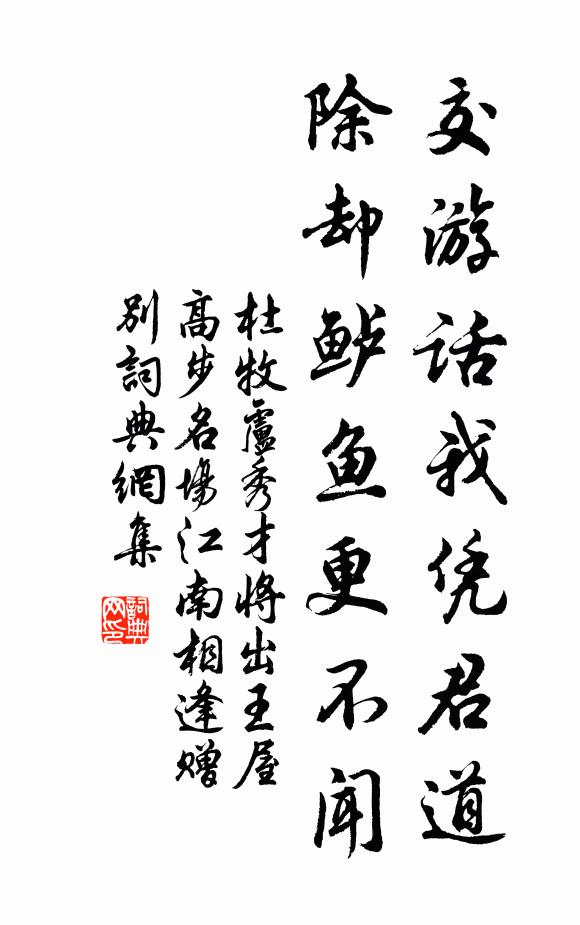 交游话我凭君道
除却鲈鱼更不闻
杜牧盧秀才将出王屋
高步名場江南相逢赠
别詞典網集
詞典
网印